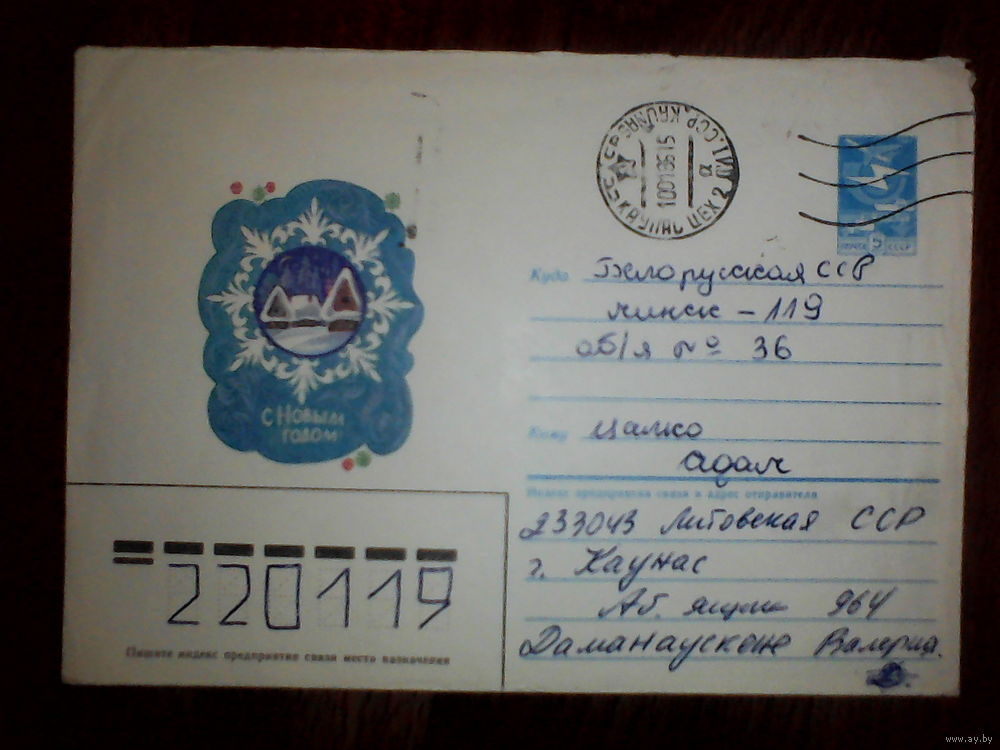 КАУНАС ЦЕХ 2
10 01 86 15
ПОЧТА 5 СССР
С Новым
годом
Куда Белорусская ССР
Минск - 119
аб/я № 36
Кому Цалко
Адам
Индекс предприятия связи и адрес отправителя
233043 Литовская ССР
г. Каунас
Аб. ящик 964
Даманаускене Валерия.
220119
Пишите индекс предприятия связи места назначения
www.ay.by